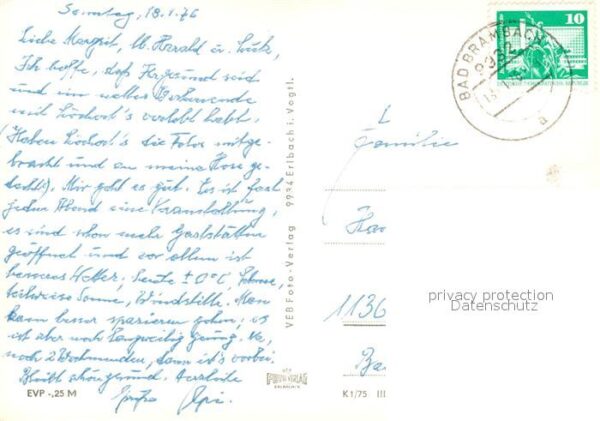 Sonntag, 18.1.76
Liebe Margrit, lb. Harald u. Lutz,
Ich hoffe, daß Ihr gesund seid
und ein nettes Wochenende
mit Löchort's verlebt habt.
(Haben Löchort's die Fotos mitge-
bracht und an meine Hose ge-
dacht?). Mir geht es gut. Es ist fast
jeden Abend eine Veranstaltung,
es sind schon mehr Gaststätten
geöffnet und vor allem ist
besseres Wetter; heute ± 0°C, Schnee,
teilweise Sonne, Windstille. Man
kann besser spazieren gehen; es
ist aber noch langweilig genug. Na,
noch 2 Wochenenden, dann ist's vorbei.
Bleibt schön gesund. Herzliche
Grüße
EVP -,25 M
VEB Foto-Verlag 9934 Erlbach i. Vogtl.
VEB
FOTO-VERLAG
ERLBACH
K 1/75 III
BAD BRAMBACH
9932
a
10
DEUTSCHE DEMOKRATISCHE REPUBLIK
Familie
1136
privacy protection
Datenschutz